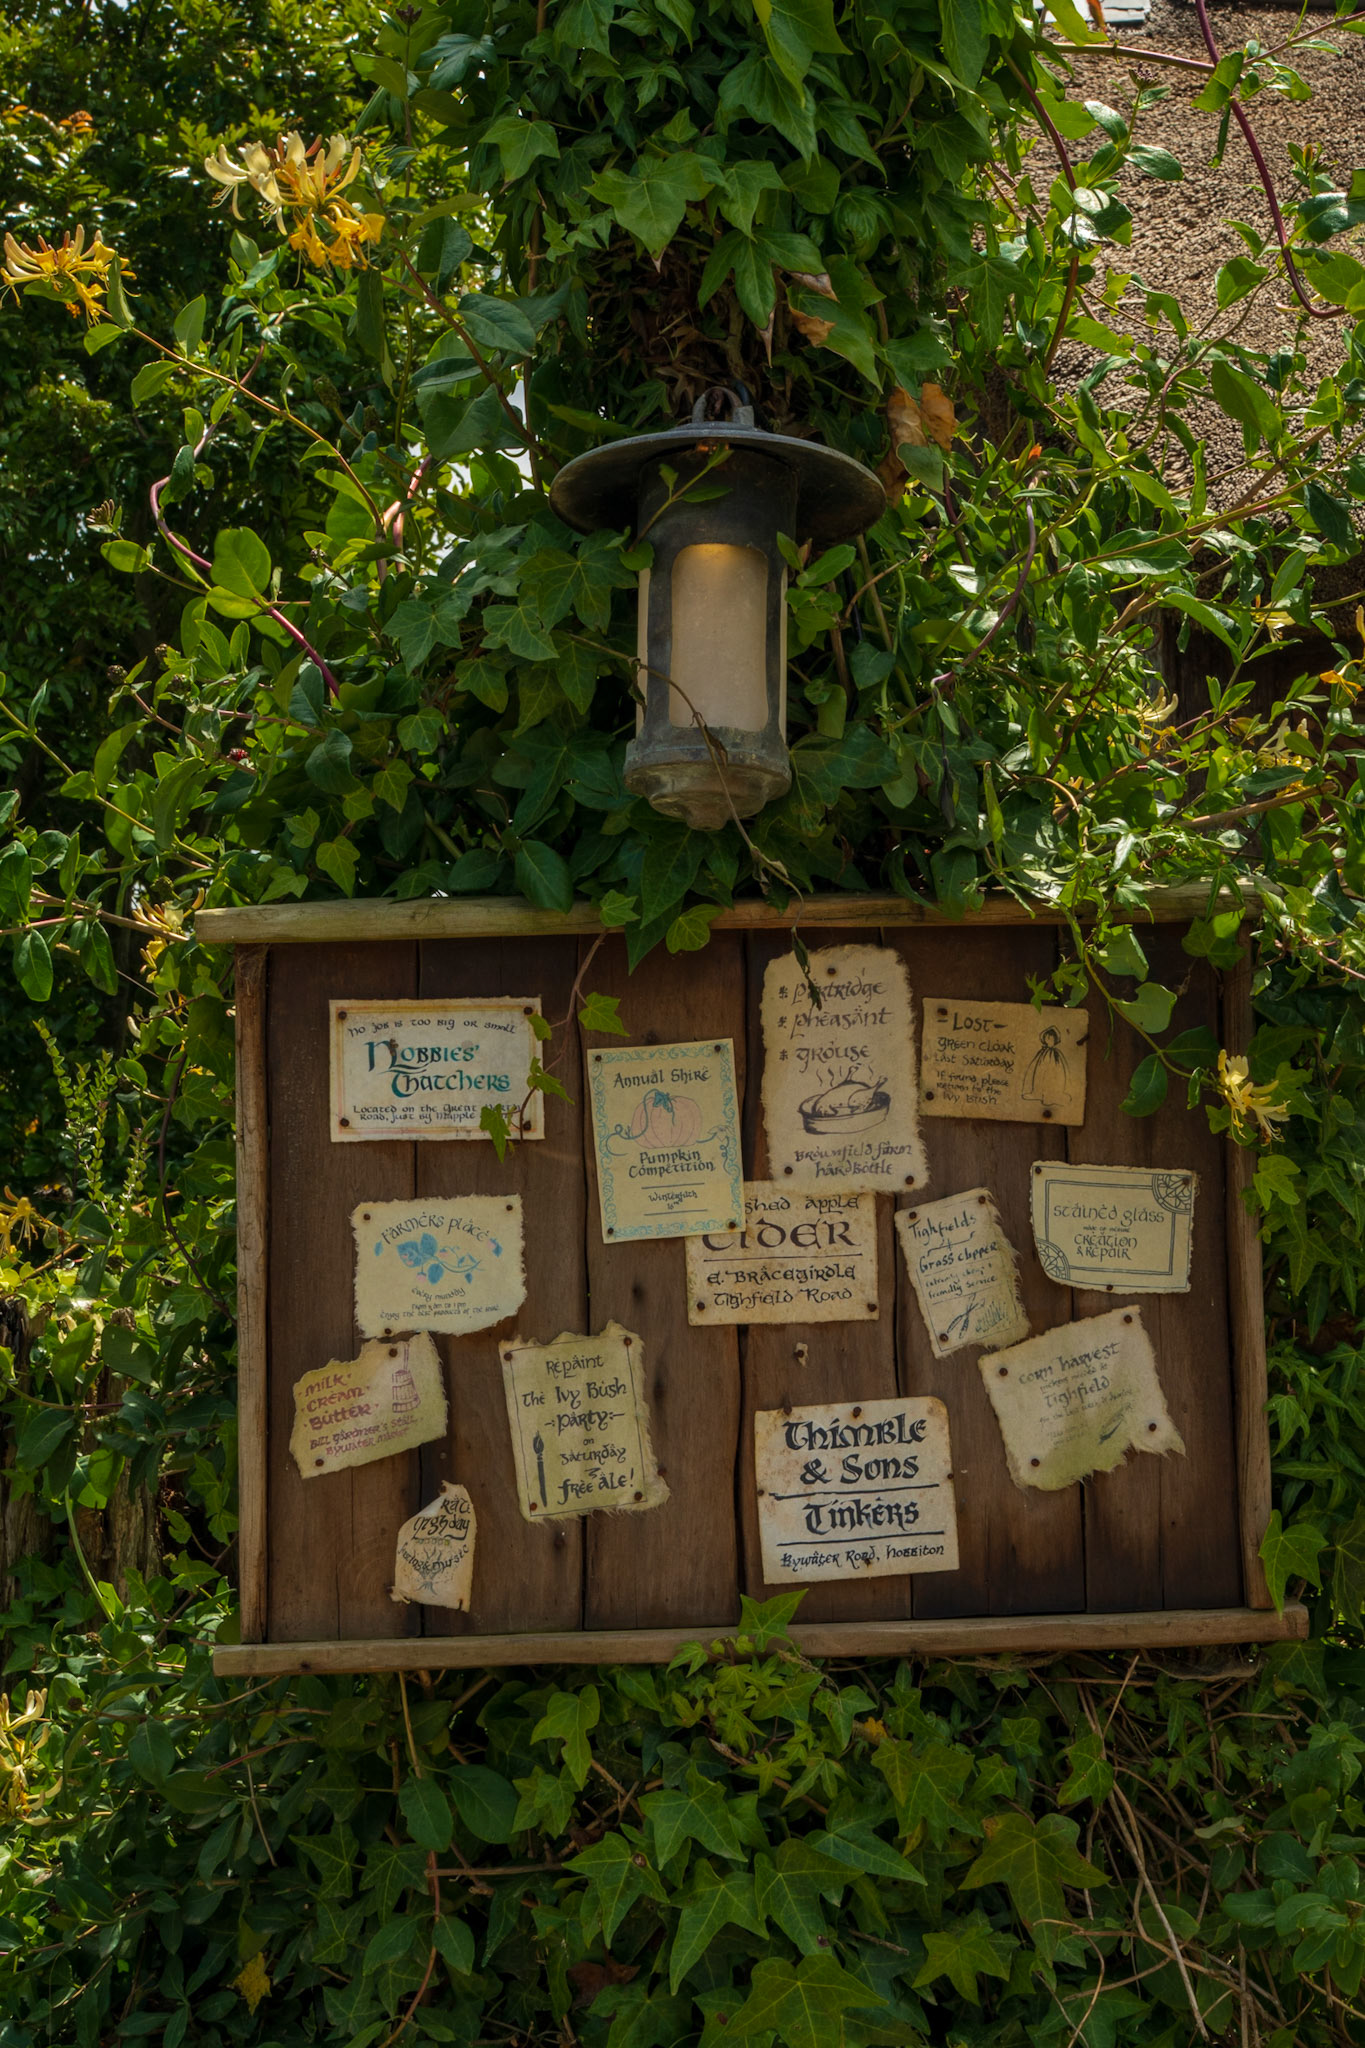 No job is too big or small
Nobbies'
Thatchers
Located on the Great
Road, just by
Annual Shire
Pumpkin
Competition
Winterfilth
Partridge
Pheasant
Grouse
Brownfield Farm
Hardbottle
- Lost -
Green Cloak
Last Saturday
If found please
return to the
Ivy Bush
Farmers place
Every
from to 1 pm
Enjoy the best products of the
shed apple
Cider
E. Bracegirdle
Tighfield Road
Tighfields
Grass clipper
friendly service
Stained glass
Creation
& Repair
Milk
Cream
Butter
Bill Gardner's Stall
Bywater
Repaint
The Ivy Bush
-:Party:-
on
Saturday
Free ale!
Corn harvest
Tighfield
for the
Thimble
& Sons
Tinkers
Bywater Road, Hobbiton
music